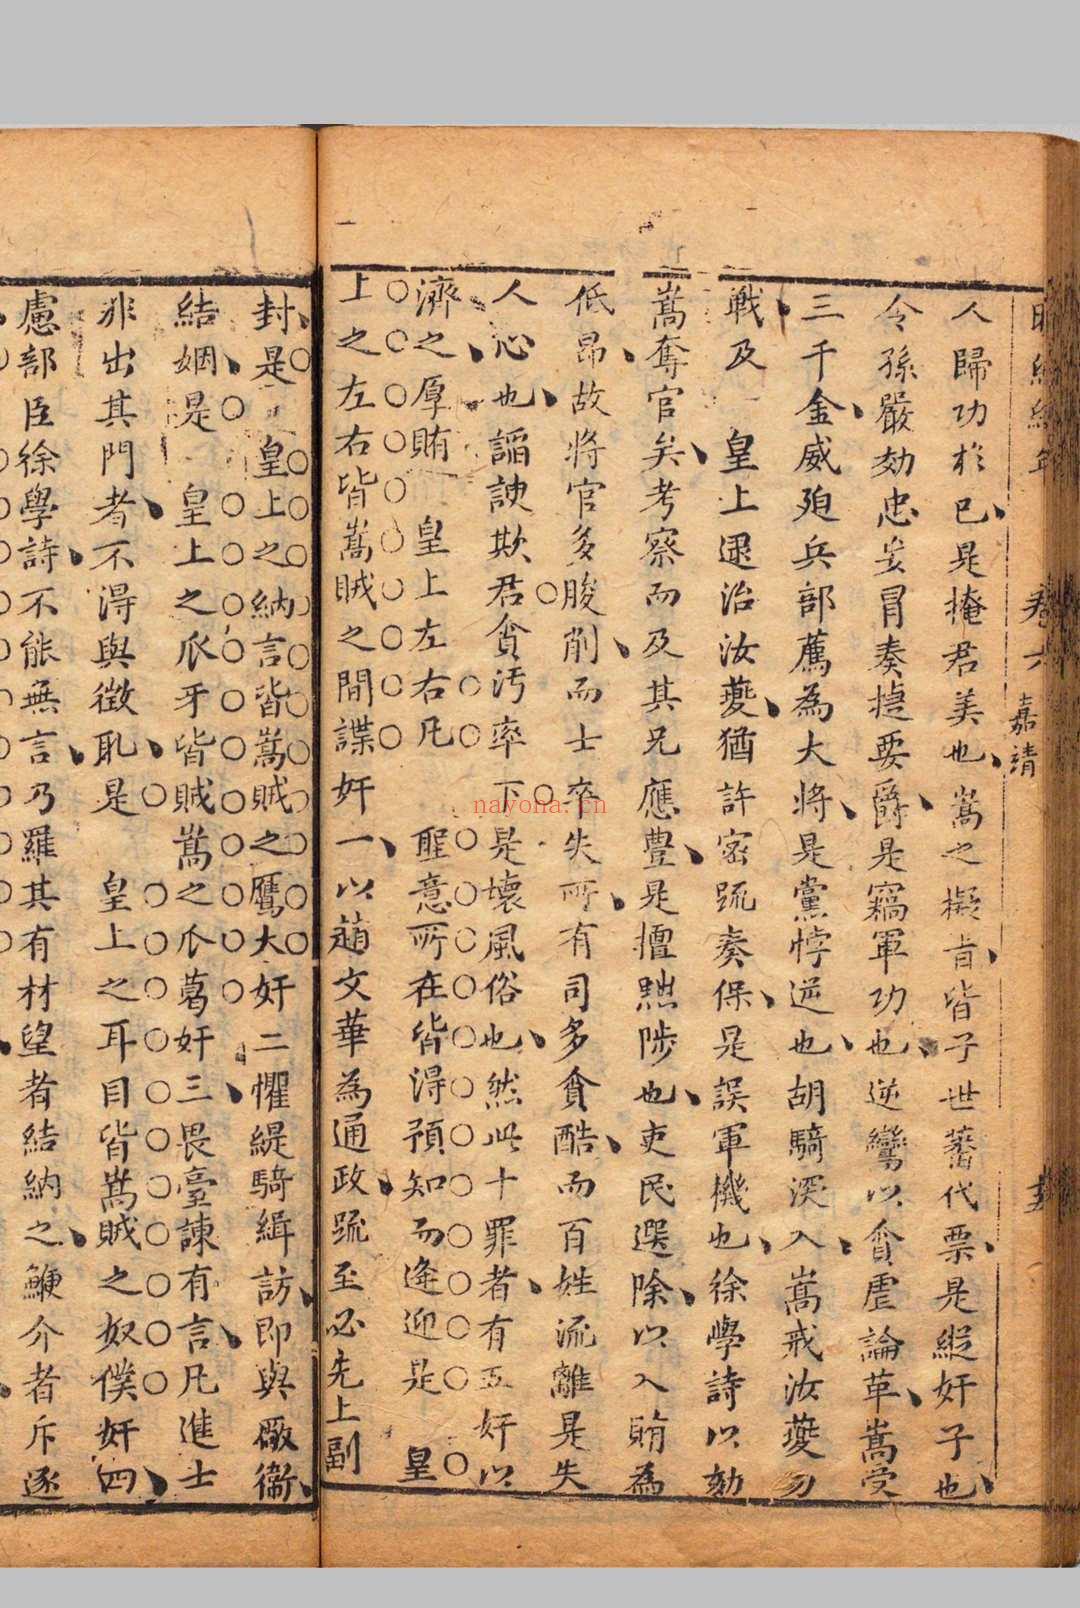 明紀編年 卷六 嘉靖 十五
人歸功於已是掩君美也嵩之擬旨皆子世蕃代票是縱奸子也
令孫嚴効忠妄冒奏捷要爵是竊軍功也逆鸞以貪虐論革嵩受
三千金威廹兵部薦為大將是黨悖逆也胡騎深入嵩戒汝夔勿
戰及 皇上逮治汝夔猶許密疏奏保是誤軍機也徐學詩以劾
嵩奪官矣考察而及其兄應豊是擅黜陟也吏民選除以入賄為
低昂故將官多朘削而士卒失所有司多貪酷而百姓流離是失
人心也謟諛欺君貪汚率下是壞風俗也然此十罪者有五奸以
濟之厚賄 皇上左右凡 聖意所在皆得預知而逄迎是 皇
上之左右皆嵩賊之間諜奸一以趙文華為通政疏至必先上副
封是 皇上之納言皆嵩賊之鷹犬奸二懼緹騎緝訪即與厰衞
結姻是 皇上之爪牙皆賊嵩之爪葛奸三畏臺諫有言凡進士
非出其門者不得與徵耴是 皇上之耳目皆嵩賊之奴僕奸四
慮部臣徐學詩不能無言乃羅其有材望者結納之鯁介者斥逐
nayona.cn